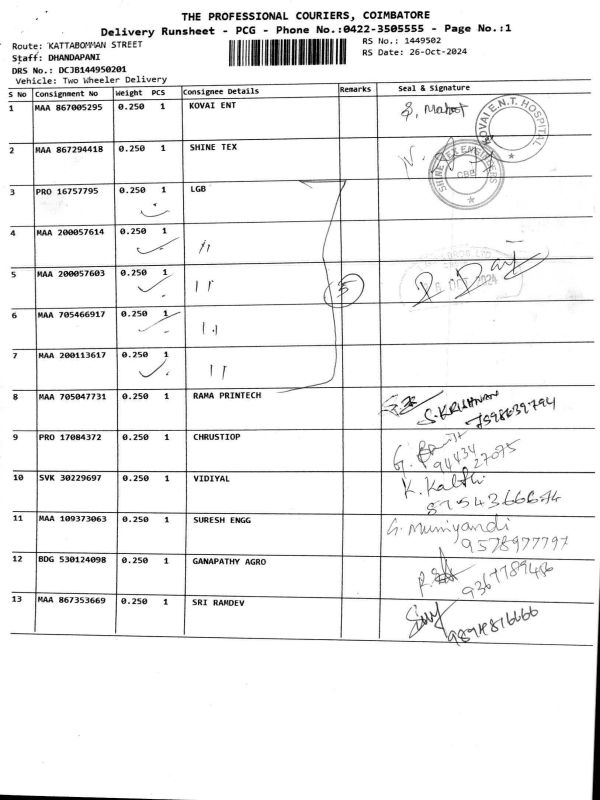 THE PROFESSIONAL COURIERS, COIMBATORE
Delivery Runsheet - PCG - Phone No.:0422-3505555 - Page No.:1
Route: KATTABOMMAN STREET
RS No.: 1449502
Staff: DHANDAPANI
RS Date: 26-Oct-2024
DRS No.: DCJB144950201
Vehicle: Two Wheeler Delivery
S No Consignment No Weight PCS Consignee Details Remarks Seal & Signature
1 MAA 867005295 0.250 1 KOVAI ENT
KOVAI E.N.T. HOSPITAL
2 MAA 867294418 0.250 1 SHINE TEX
CBE
3 PRO 16757795 0.250 1 LGB
4 MAA 200057614 0.250 1 ıı
5 MAA 200057603 0.250 1 ıı 5
6 MAA 705466917 0.250 1 ıı
7 MAA 200113617 0.250 1 ıı
8 MAA 705047731 0.250 1 RAMA PRINTECH S.KRISHNAN
7598639794
9 PRO 17084372 0.250 1 CHRUSTIOP
94434 27075
10 SVK 30229697 0.250 1 VIDIYAL K. Kalthi
8754366674
11 MAA 109373063 0.250 1 SURESH ENGG G. Muniyandi
9578977797
12 BDG 530124098 0.250 1 GANAPATHY AGRO
9367789486
13 MAA 867353669 0.250 1 SRI RAMDEV
9894816666